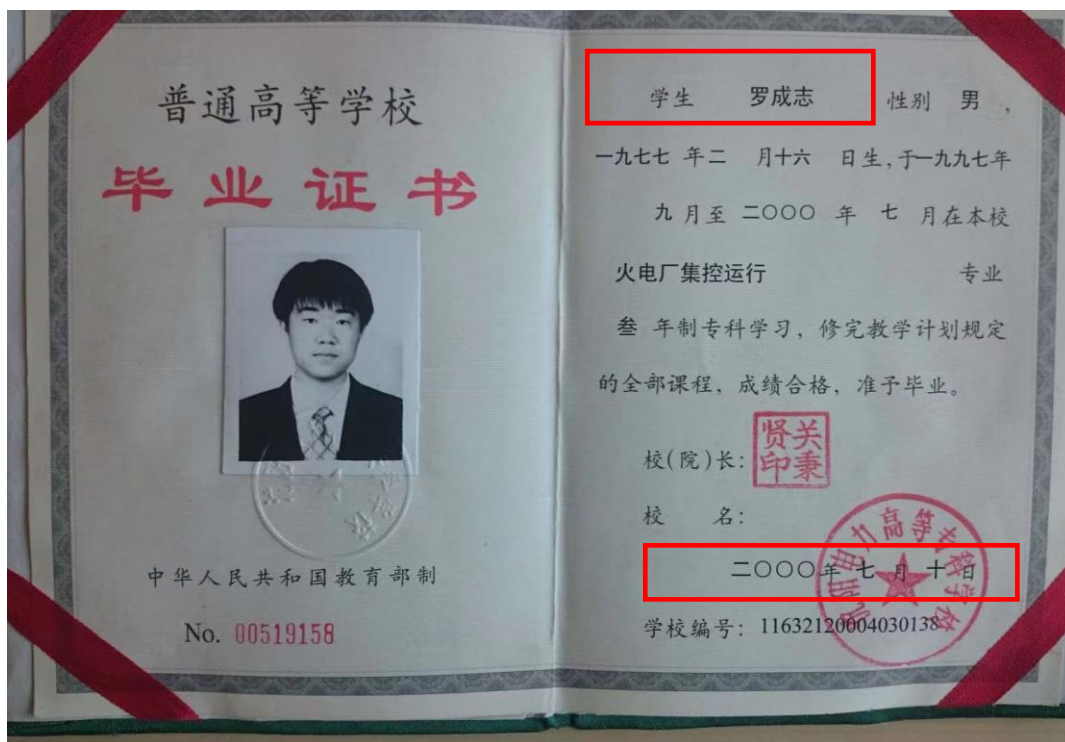 普通高等学校
毕业证书
中华人民共和国教育部制
No. 00519158
学生 罗成志 性别 男,
一九七七 年二 月十六 日生,于一九九七年
九 月至 二○○○ 年 七 月在本校
火电厂集控运行 专业
叁 年制专科学习, 修完教学计划规定
的全部课程, 成绩合格, 准予毕业。
校(院)长:
关秉贤印
校 名:
沈阳电力高等专科学校
二○○○年 七 月 十 日
学校编号: 11632120004030138